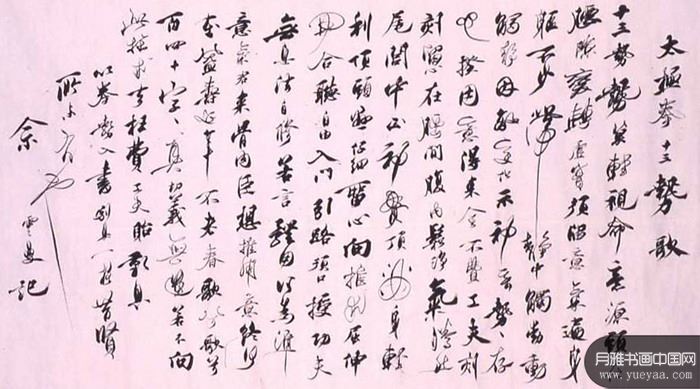 太極拳十三勢歌
十三勢勢莫輕視命意源頭
腰隙變轉虛實須留意氣遍身
軀不少滯靜中觸動動
觸靜因敵變化示神奇勢存
心揆用意得來全不費工夫刻
刻留心在腰間腹內鬆淨氣騰然
尾閭中正神貫頂滿身輕
利頂頭懸仔細留心向推求屈伸
開合聽自由入門引路須口授功夫
無息法自修若言體用何為準
意氣君來骨肉臣想推用意終何
在益壽延年不老春歌兮歌兮
百四十字真切義無遺若不向
此推求去枉費工夫貽歎息
以拳入書別具一昔賢
所未有也
余記
月雅书画中国网
www.yueyaa.com